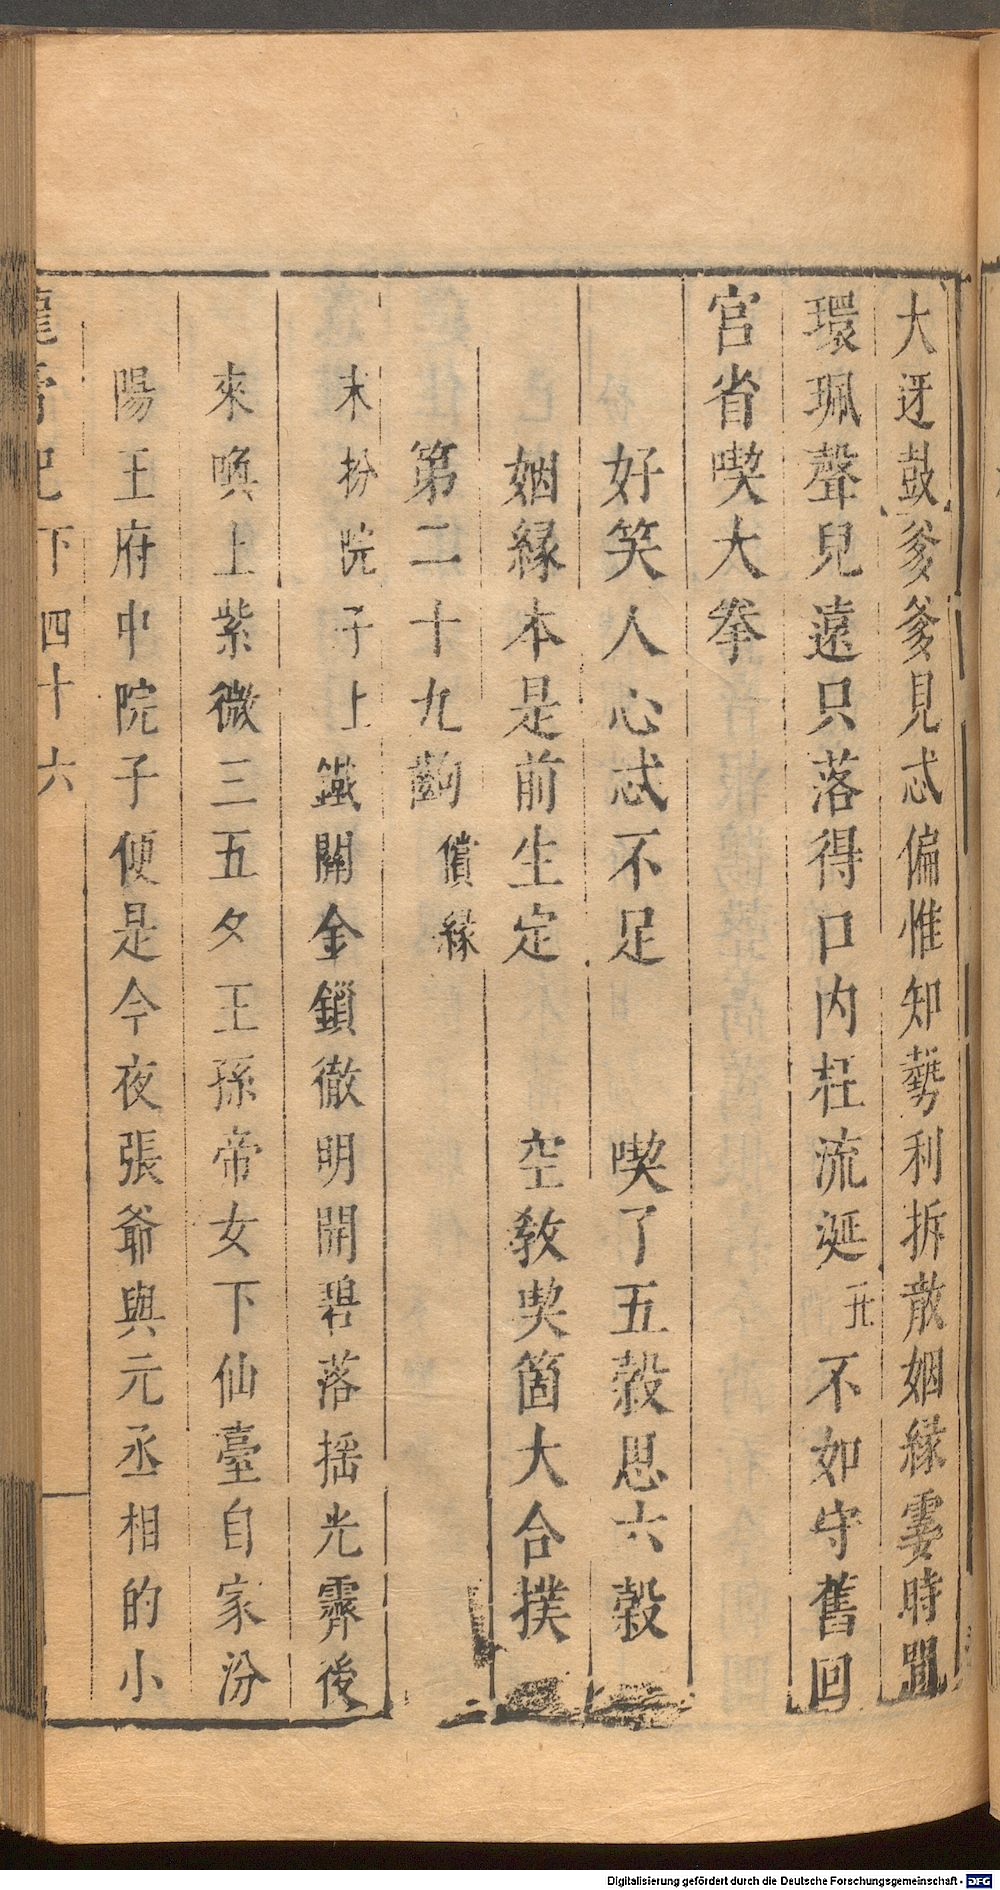 大迓鼓爹爹見忒偏惟知勢利拆散姻緣霎時間
環珮聲兒遠只落得口內枉流涎丑不如守舊回
宫省喫大拳
好笑人心忒不足　喫了五穀思六穀
姻緣本是前生定　空教喫箇大合撲
第二十九齣償緣
末扮院子上鐵關金鎖徹明開碧落揺光霽後
來喚上紫微三五夕王孫帝女下仙臺自家汾
陽王府中院子便是今夜張爺與元丞相的小
龍膏記下四十六
Digitalisierung gefördert durch die Deutsche Forschungsgemeinschaft - DFG